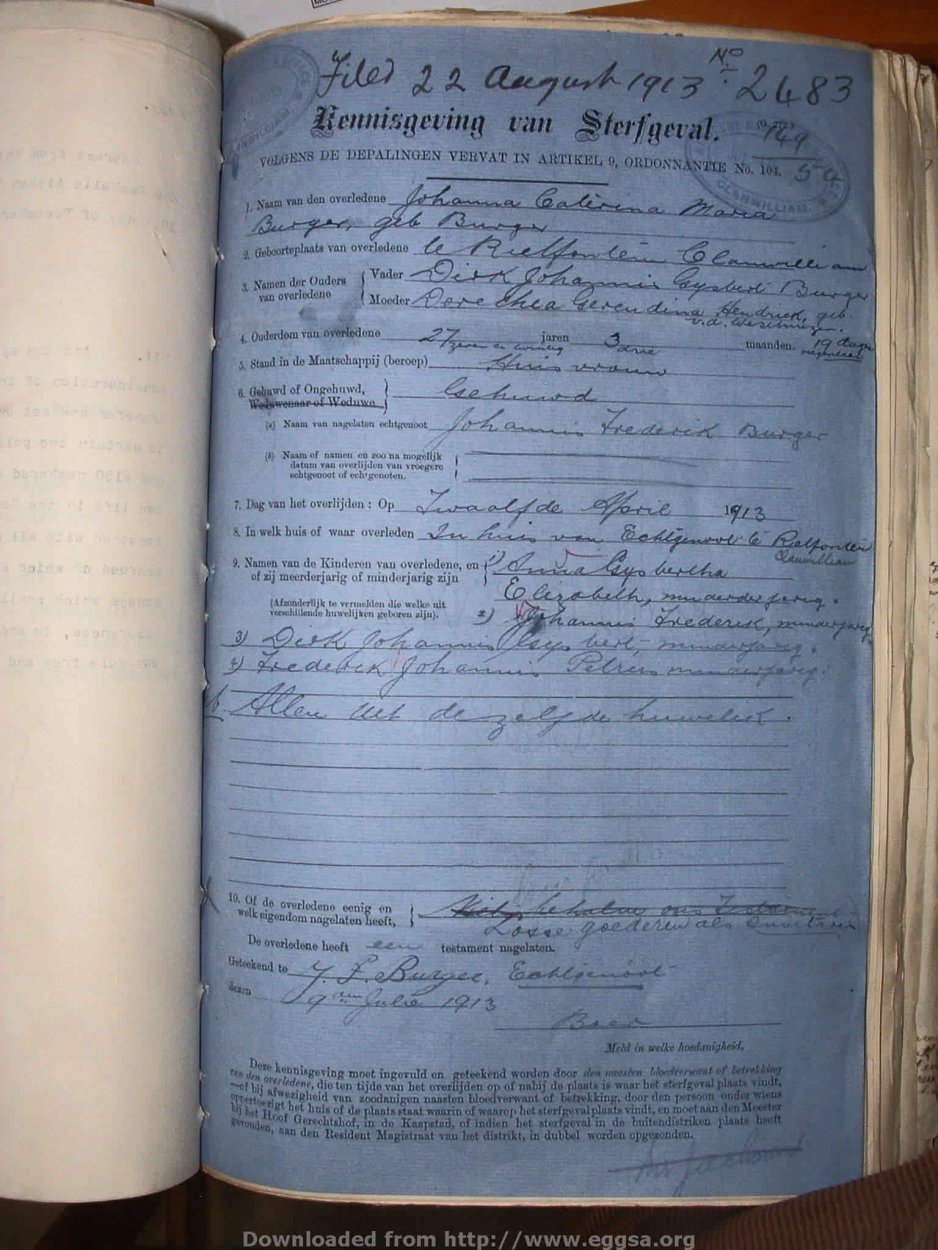 Filed 22 August 1913 No 2483
Kennisgeving van Sterfgeval.
149
54
VOLGENS DE BEPALINGEN VERVAT IN ARTIKEL 9, ORDONNANTIE No. 104.
CLANWILLIAM
1. Naam van den overledene Johanna Caterina Maria
Burger, geb Burger
2. Geboorteplaats van overledene te Rietfontein Clanwilliam
3. Namen der Ouders van overledene
Vader Dirk Johannis Gysbert Burger
Moeder Dorethea Gerendina Hendriek, geb
v.d. Westhuizen.
4. Ouderdom van overledene 27 jaren 3 maanden. 19 dage
zeven en twintig drie
5. Stand in de Maatschappij (beroep) Huis vrouw
6. Gehuwd of Ongehuwd,
Weduwenaar of Weduwe
Gehuwd
(a) Naam van nagelaten echtgenoot Johannis Frederik Burger
(b) Naam of namen en zoo na mogelijk
datum van overlijden van vroegere
echtgenoot of echtgenoten.
7. Dag van het overlijden: Op Twaalfde April 1913
8. In welk huis of waar overleden In huis van Echtgenoot te Rietfontein
Clanwilliam
9. Namen van de Kinderen van overledene, en
of zij meerderjarig of minderjarig zijn
(Afzonderlijk te vermelden die welke uit
verschillende huwelijken geboren zijn).
1) Anna Gysbertha
Elizabeth, minderderjarig.
2) Johannis Frederik, minderjarig.
3) Dirk Johannis Gysbert, minderjarig.
4) Frederik Johannis Petrus minderjarig.
Allen uit de zelfde huwelik.
10. Of de overledene eenig en
welk eigendom nagelaten heeft,
behalve ons Testament
Losse goederen als Inventaris
De overledene heeft een testament nagelaten.
Geteekend te J. F. Burger, Echtgenoot
dezen 9 Julie 1913
Boer
Meld in welke hoedanigheid.
Deze kennisgeving moet ingevuld en geteekend worden door den naasten bloedverwant of betrekking
van den overledene, die ten tijde van het overlijden op of nabij de plaats is waar het sterfgeval plaats vindt,
—of bij afwezigheid van zoodanigen naasten bloedverwant of betrekking, door den persoon onder wiens
oppertoezigt het huis of de plaats staat waarin of waarop het sterfgeval plaats vindt, en moet aan den Meester
bij het Hoof Gerechtshof, in de Kaapstad, of indien het sterfgeval in de buitendistriken plaats heeft
gevonden, aan den Resident Magistraat van het distrikt, in dubbel worden opgezonden.
Downloaded from http://www.eggsa.org